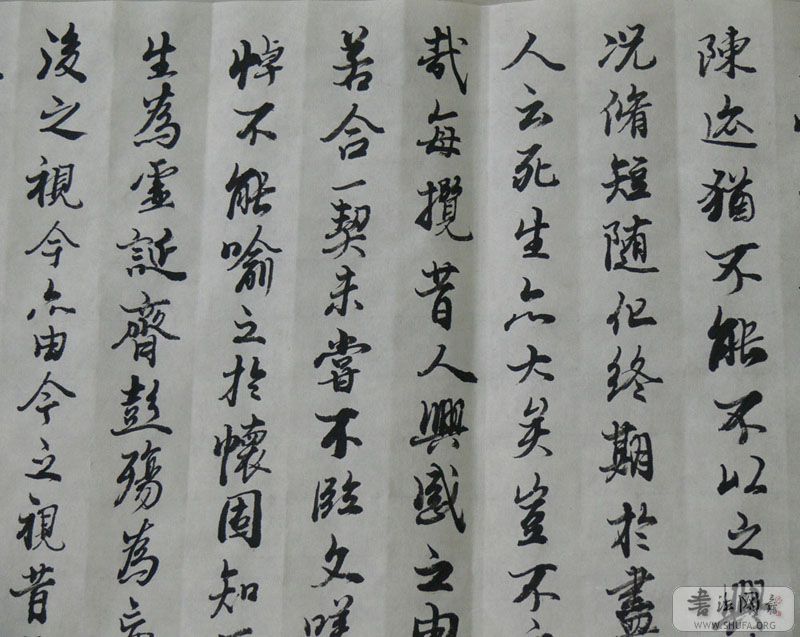 陳迹猶不能不以之興
况脩短随化終期於盡
人云死生亦大矣豈不
哉每攬昔人興感之由
若合一契未嘗不臨文嗟
悼不能喻之於懷固知
生為虛誕齊彭殤為妄
後之視今亦由今之視昔
WWW.SHUFA.ORG